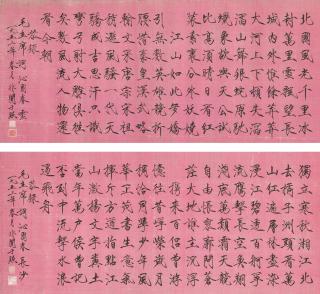 北國風光千里冰
封萬里雪飄望長
城內外惟餘莽莽
大河上下頓失滔
滔山舞銀蛇原馳
蠟象欲與天公試
比高須晴日看紅
裝素裹分外妖嬈
江山如此多嬌
引無數英雄競折
腰惜秦皇漢武略
輸文采唐宗宋祖
稍遜風騷一代天
驕成吉思汗只識
彎弓射大鵰俱往
矣數風流人物還
看今朝
恭錄
毛主席詞 沁園春 雪
年春月
獨立寒秋湘江北
去橘子洲頭看萬
山紅遍層林盡染
漫江碧透百舸爭
流鷹擊長空魚翔
淺底萬類霜天競
自由悵寥廓問蒼
茫大地誰主沉浮
攜來百侶曾遊
憶往昔崢嶸歲月
稠恰同學少年風
華正茂書生意氣
揮斥方遒指點江
山激揚文字糞土
當年萬戶侯曾記
否到中流擊水浪
遏飛舟
恭錄
毛主席詞 沁園春 長沙
年春月